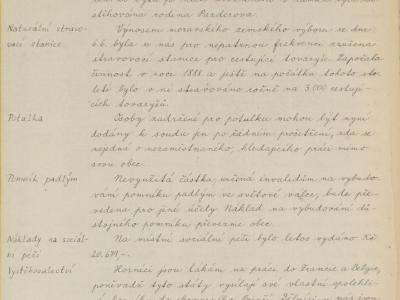 stihována rodina Pazderova.
Naturální stravo-
vací stanice
Výnosem moravského zemského výboru ze dne
6.6. byla u nás pro nepatrnou frekvenci zrušena
stravovací stanice pro cestující tovaryše. Započala
činnost v roce 1888 a ještě na počátku tohoto sto-
letí bylo v ní stravováno ročně na 3.000 cestují-
cích tovaryšů.
Potulka
Osoby zadržené pro potulku mohou být nyní
dodány k soudu jen po řádném prošetření, zda se
nejedná o nezaměstnaného, hledajícího práci mimo
svou obec.
Pomník padlým
Nevyužitá částka, určená invalidům na vybudo-
vání pomníku padlým ve světové válce, bude pře-
vedena pro jiné účely. Náklad na vybudování dů-
stojného pomníku převezme obec.
Náklady na sociál-
ní péči
Na místní sociální péči bylo letos vydáno Kč
20.679,-.
Vystěhovalectví
Horníci jsou lákáni na práci do Francie a Belgie,
poněvadž tyto státy vysílají své vlastní